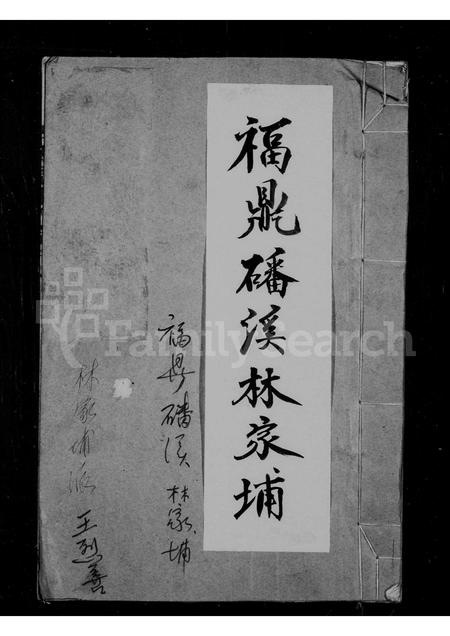 福鼎磻溪林家埔
福鼎磻溪林家埔
林家埔派 王烈善
FamilySearch